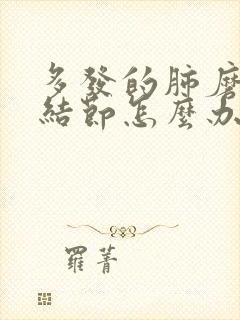 多發的肺磨
結節怎麼办
羅菁